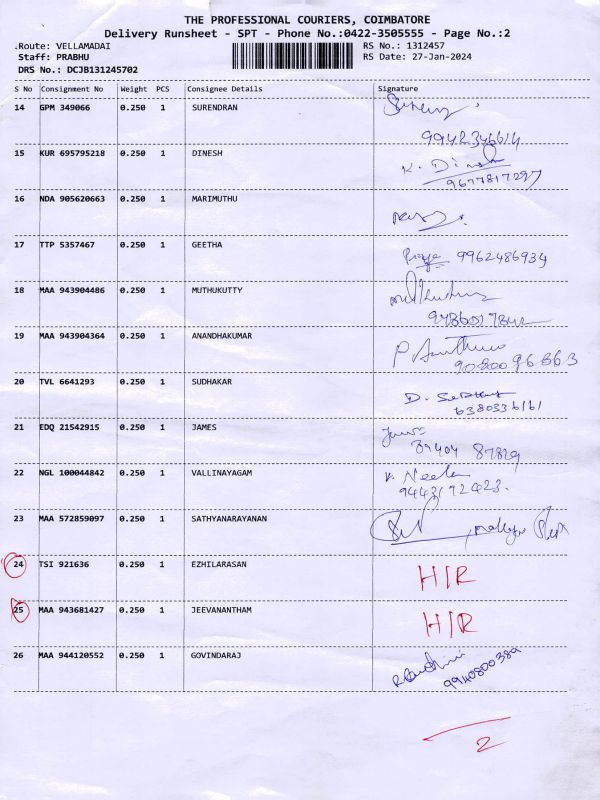 THE PROFESSIONAL COURIERS, COIMBATORE
Delivery Runsheet - SPT - Phone No.:0422-3505555 - Page No.:2
.Route: VELLAMADAI RS No.: 1312457
Staff: PRABHU RS Date: 27-Jan-2024
DRS No.: DCJB131245702
S No Consignment No Weight PCS Consignee Details Signature
14 GPM 349066 0.250 1 SURENDRAN
9942346614
15 KUR 695795218 0.250 1 DINESH K. Dinesh
9677817297
16 NDA 905620663 0.250 1 MARIMUTHU
17 TTP 5357467 0.250 1 GEETHA 9962486934
18 MAA 943904486 0.250 1 MUTHUKUTTY
19 MAA 943904364 0.250 1 ANANDHAKUMAR
9080096863
20 TVL 6641293 0.250 1 SUDHAKAR
6380336161
21 EDQ 21542915 0.250 1 JAMES
22 NGL 100044842 0.250 1 VALLINAYAGAM
23 MAA 572859097 0.250 1 SATHYANARAYANAN
24 TSI 921636 0.250 1 EZHILARASAN H/R
25 MAA 943681427 0.250 1 JEEVANANTHAM H/R
26 MAA 944120552 0.250 1 GOVINDARAJ
9940800389
2